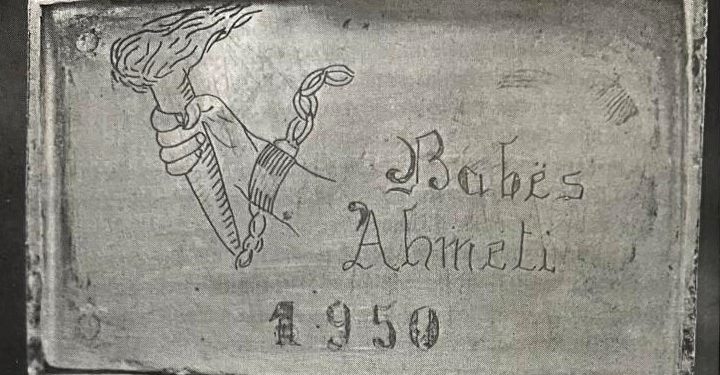 Babës
Ahmeti
1950